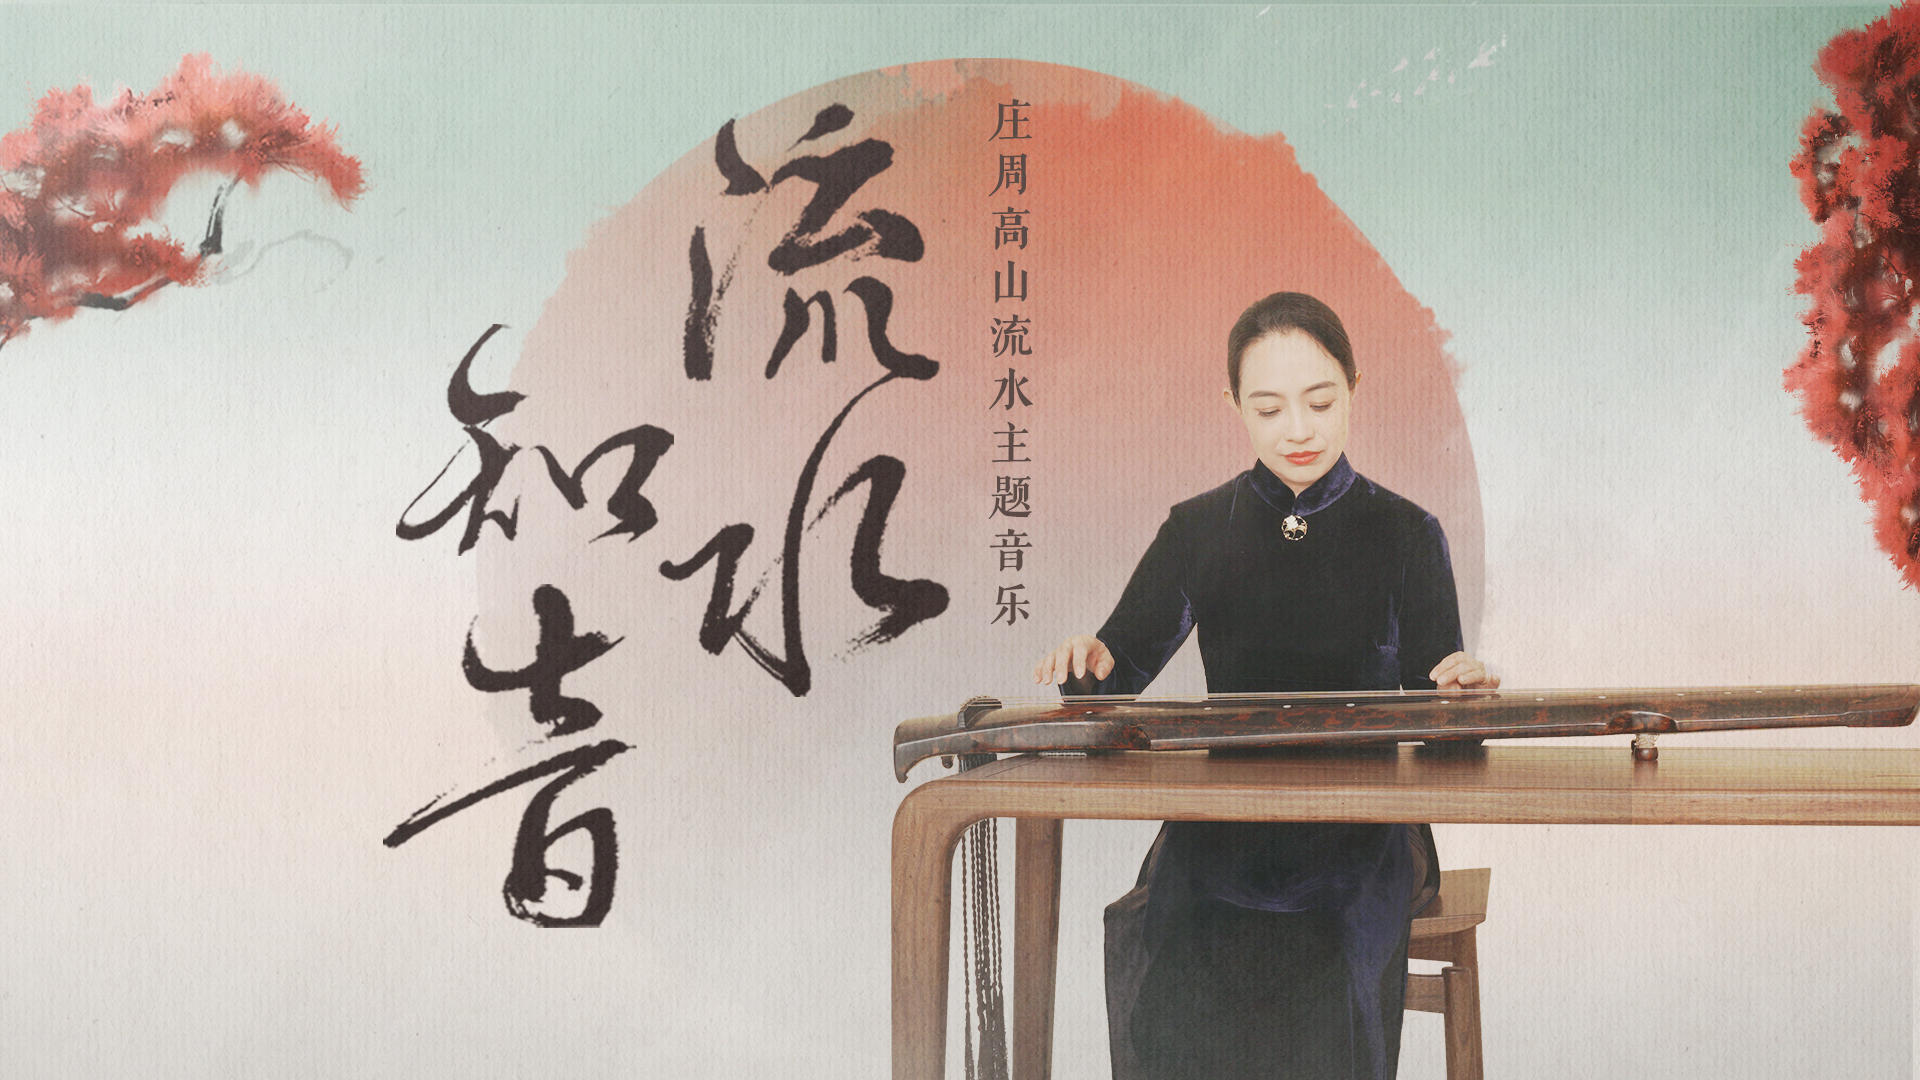 庄周高山流水主题音乐
流水
知音